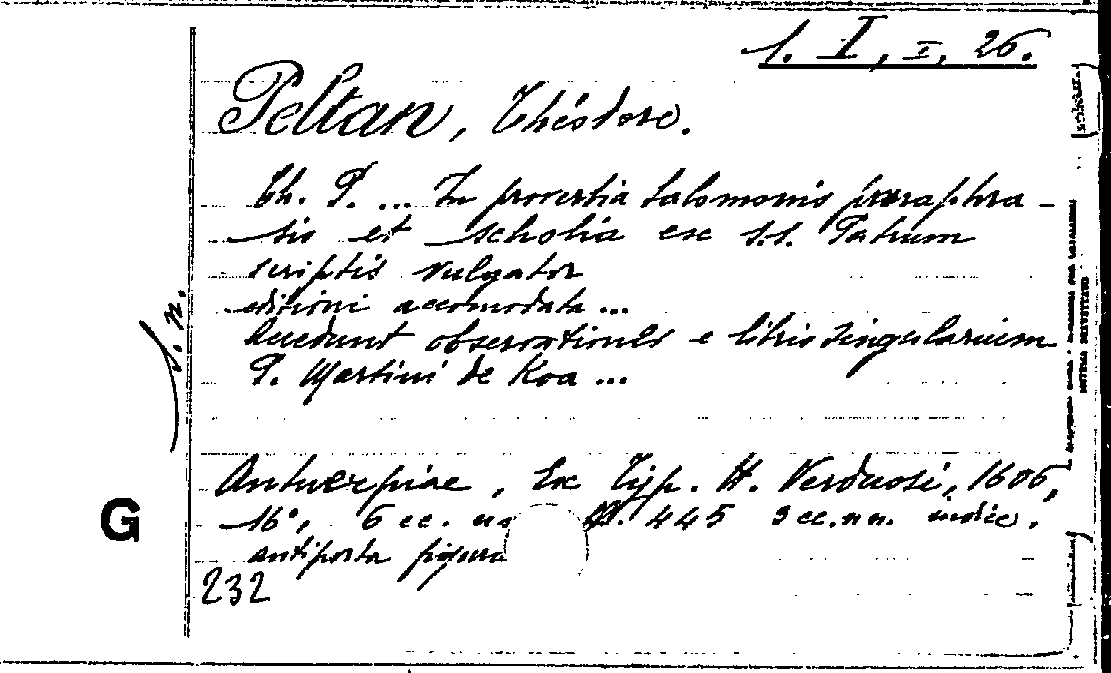 1. I, I, 26.
Peltan, Théodore.
Th. P. ... In proverbia Salomonis paraphra-
sis et scholia ex s.s. Patrum
scriptis vulgator
editioni accomodata ...
Accedunt observationes e libris singularium
P. Martini de Roa ...
Antverpiae, Ex Typ. H. Verdussi, 1606,
16°, 6 cc. nn. 445 3 cc. nn. indic.
antiporta figura
232
G